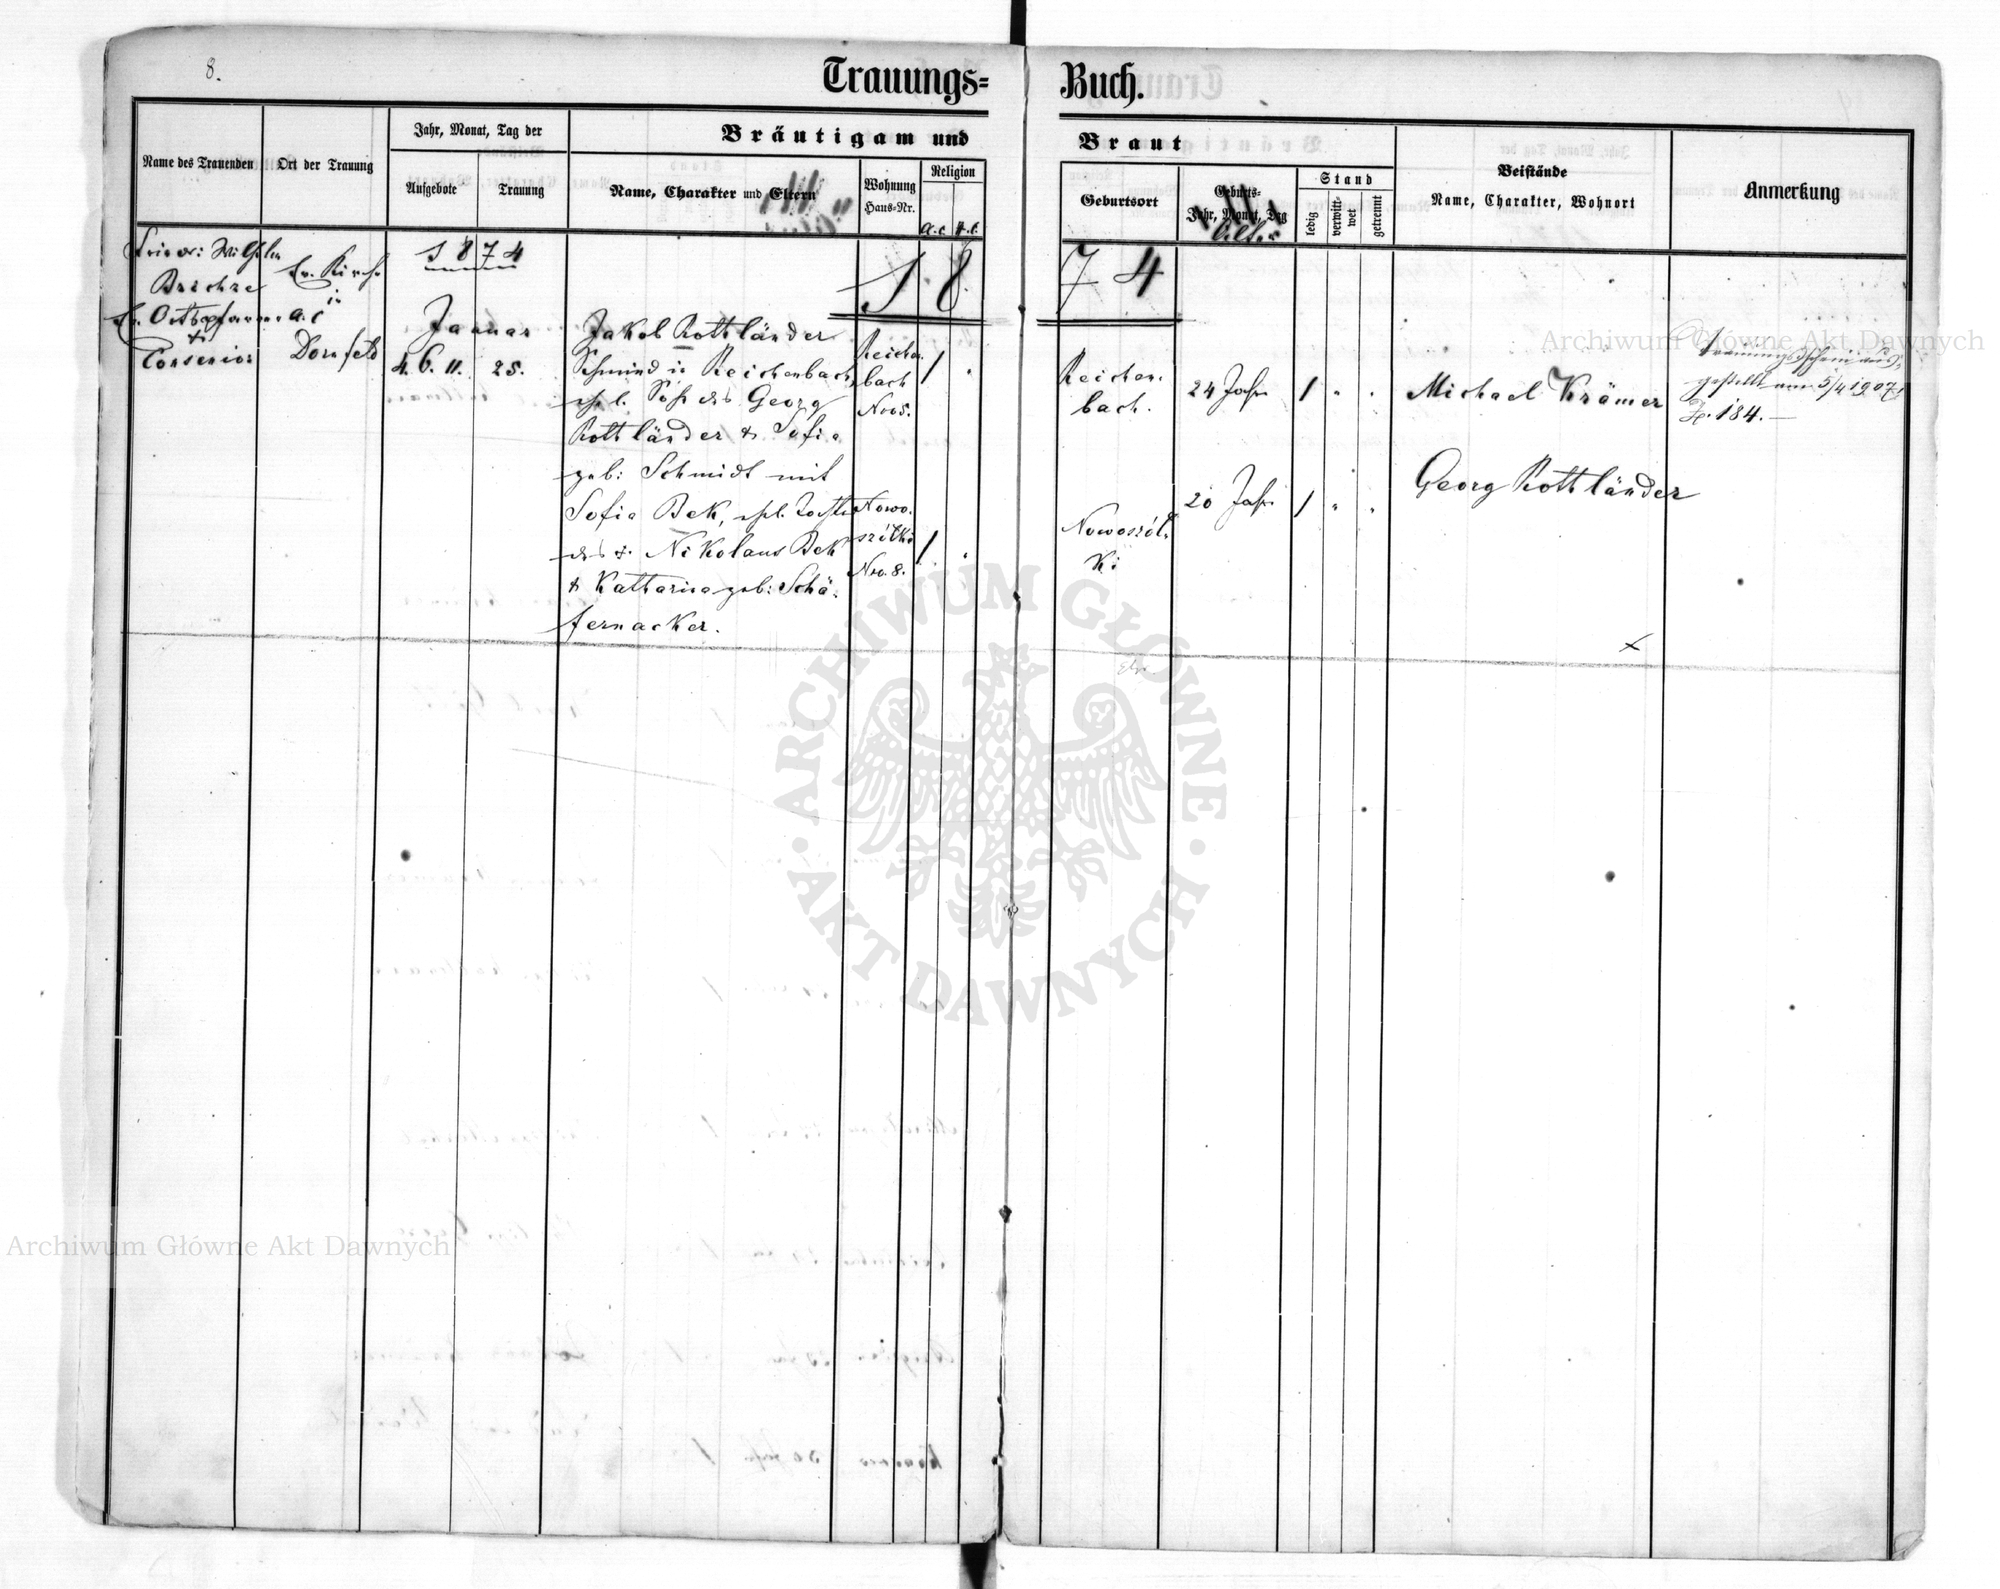 8.
Trauungs=
Buch.
Jahr, Monat, Tag der
Bräutigam und
Braut
Name des Trauenden
Ort der Trauung
Aufgebote
Trauung
Name, Charakter und Eltern
Wohnung
Haus-Nr.
Religion
a.c. H.c.
Geburtsort
Geburts-
Jahr, Monat, Tag
Alter
Stand
ledig
verwitt-
wet
getrennt
Beistände
Name, Charakter, Wohnort
Anmerkung
1874
1874
Ev. Kirche
in
Dornfeld
Ev. Ortspfarrer a. c.
&
Consenior
Januar
4. 6. 11.
25.
Jakob Rottländer
Schmied in Reichenbach,
ehl. Sohn des Georg
Rottländer & Sofia
geb: Schmidt mit
Sofia Bek, ehl. Tochter
des + Nikolaus Bek
& Katharina geb: Schä-
fernacker.
Reichen
bach
Nro 5.
1
Nowo-
siółki
Nro. 8.
1
Reichen-
bach.
24 Jahr
1
Michael Krämer
Nowosiół-
ki
20 Jahr
1
Georg Rottländer
Trauungsschein aus-
gestellt am 5/4 1907
Z. 184.—
Archiwum Główne Akt Dawnych
ARCHIWUM GŁÓWNE
AKT DAWNYCH
Archiwum Główne Akt Dawnych